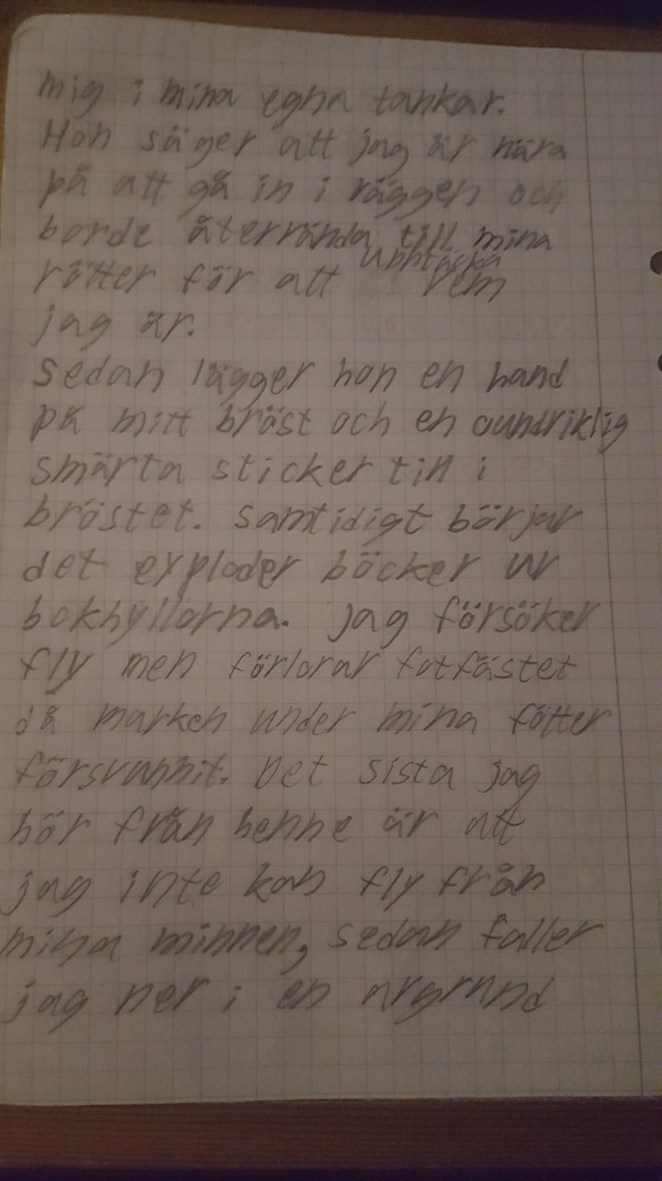 mig i mina egna tankar.
Hon säger att jag är nära
på att gå in i väggen och
borde återvända till mina
rötter för att upptäcka vem
jag är.
Sedan lägger hon en hand
på mitt bröst och en oundviklig
smärta sticker till i
bröstet. Samtidigt börjar
det exploder böcker ur
bokhyllorna. Jag försöker
fly men förlorar fotfästet
då marken under mina fötter
försvunnit. Det sista jag
hör från henne är att
jag inte kan fly från
mina minnen, sedan faller
jag ner i en avgrund